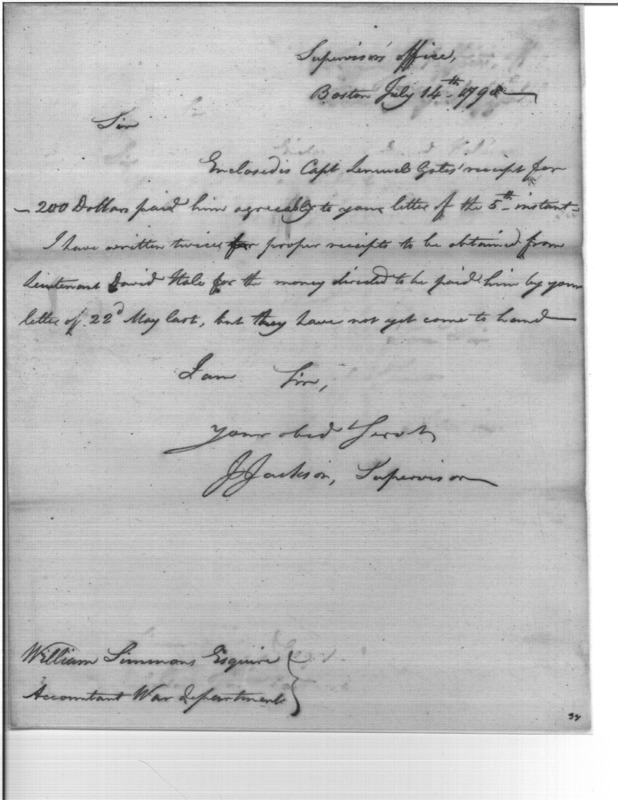 Supervisor's office,
Boston July 14th 1798
Sir
Enclosed is Capt Lemuel Gates' receipt for
200 Dollars paid him agreeably to your letter of the 5th instant
I have written twice for proper receipts to be obtained from
Lieutenant David Hale for the money directed to be paid him by your
letter of 22d May last, but they have not yet come to hand
I am Sir,
your obed Servt
J Jackson, Supervisor
William Simmons Esquire
Accountant War Department